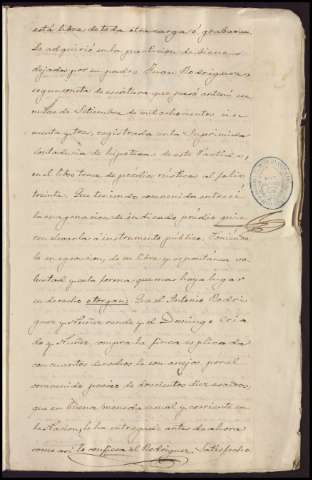 está libre de toda otra carga ó gravamen
Lo adquirió en la particion de bienes
dejados por su padre Juan Rodriguez
segun consta de escritura que pasó ante mi
en de Setiembre de mil ochocientos
cuenta y tres, registrada en la Suprimida
Contaduria de hipotecas de este Partido,
en el libro tomo de predios rústicos al folio
treinta. Que teniendo convenida entre sí
la enagenacion de indicado prédio quie
ren elevarla á instrumento público,
en egecucion, de su libre y espontánea vo
luntad y en la forma que mas haya lugar
en derecho otorgan: Que el Antonio Rodri
guez y Nuñez vende y el Domingo
do y Nuñez, compra la finca esplicada
con cuantos derechos la son anejos, por el
convenido precio de doscientos diez escudos,
que en buena moneda usual y corriente en
la Nacion, le ha entregado antes de ahora
como así lo confiesa el Rodriguez, Satisfecho